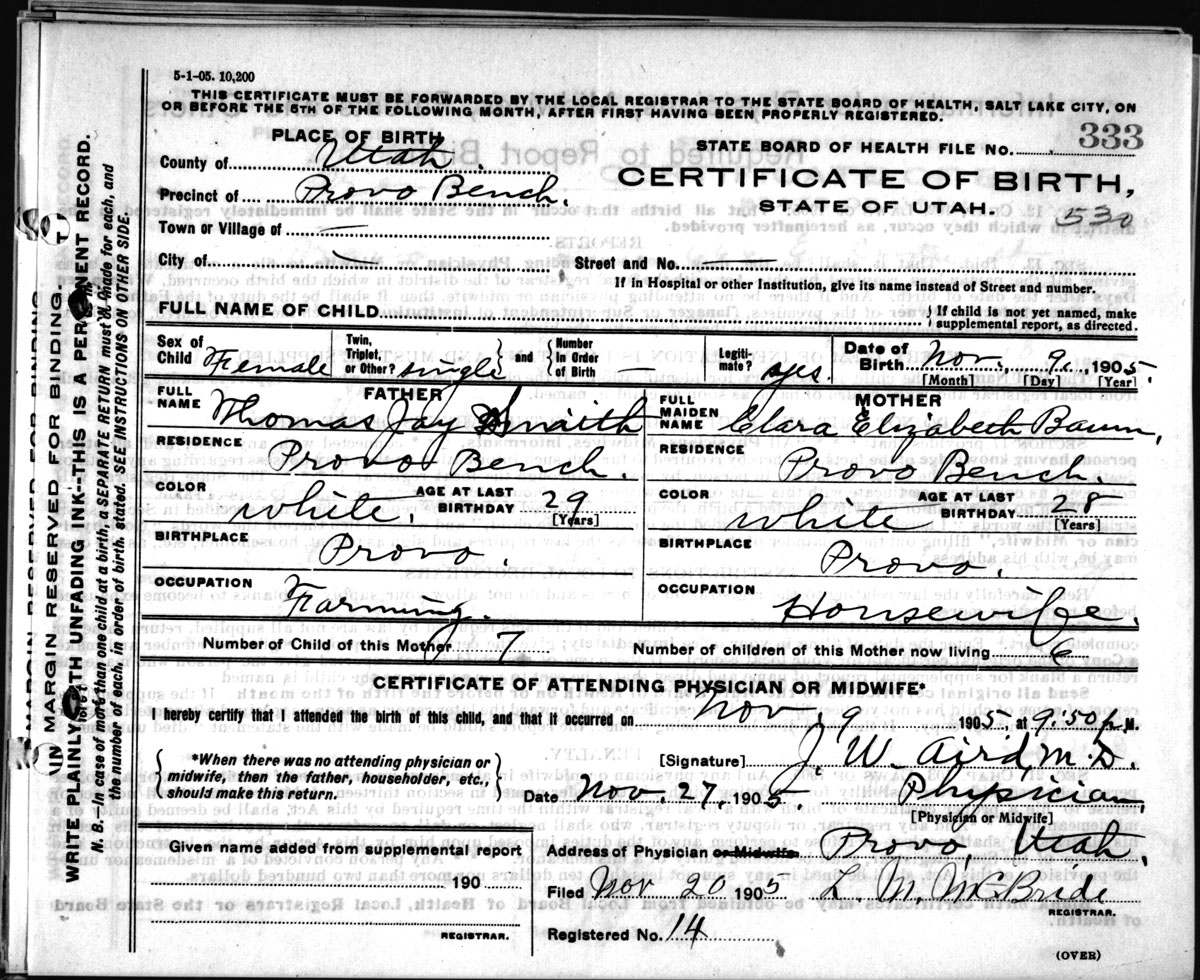 5-1-05. 10,200
THIS CERTIFICATE MUST BE FORWARDED BY THE LOCAL REGISTRAR TO THE STATE BOARD OF HEALTH, SALT LAKE CITY, ON
OR BEFORE THE 5TH OF THE FOLLOWING MONTH, AFTER FIRST HAVING BEEN PROPERLY REGISTERED.
PLACE OF BIRTH
STATE BOARD OF HEALTH FILE NO. 333
County of Utah.
CERTIFICATE OF BIRTH,
Precinct of Provo Bench.
STATE OF UTAH. 530
Town or Village of —
City of — Street and No. —
If in Hospital or other Institution, give its name instead of Street and number.
FULL NAME OF CHILD { If child is not yet named, make
supplemental report, as directed.
Sex of Child Female Twin, Triplet, or Other? single and Number in Order of Birth — Legiti-mate? yes. Date of Birth Nov. 9, 1905
[Month] [Day] [Year]
FATHER
FULL NAME Thomas Jay Smith
MOTHER
FULL MAIDEN NAME Clara Elizabeth Baum,
RESIDENCE Provo Bench.
RESIDENCE Provo Bench.
COLOR white. AGE AT LAST BIRTHDAY 29 [Years]
COLOR white AGE AT LAST BIRTHDAY 28 [Years]
BIRTHPLACE Provo.
BIRTHPLACE Provo.
OCCUPATION Farming.
OCCUPATION Housewife.
Number of Child of this Mother 7 Number of children of this Mother now living 6
CERTIFICATE OF ATTENDING PHYSICIAN OR MIDWIFE*
I hereby certify that I attended the birth of this child, and that it occurred on Nov. 9 1905, at 9.50 P. M.
*When there was no attending physician or
midwife, then the father, householder, etc.,
should make this return.
[Signature] J. W. Aird M.D.
Date Nov. 27, 1905. Physician,
[Physician or Midwife]
Given name added from supplemental report
190
REGISTRAR.
Address of Physician or Midwife Provo, Utah.
Filed Nov 20 1905 L. M. McBride
REGISTRAR.
Registered No. 14
(OVER)
MARGIN RESERVED FOR BINDING
MARGIN RESERVED FOR BINDING.
WRITE PLAINLY WITH UNFADING INK--THIS IS A PERMANENT RECORD.
N. B.—In case of more than one child at a birth a SEPARATE RETURN must be made for each, and
the number of each, in order of birth, stated. SEE INSTRUCTIONS ON OTHER SIDE.